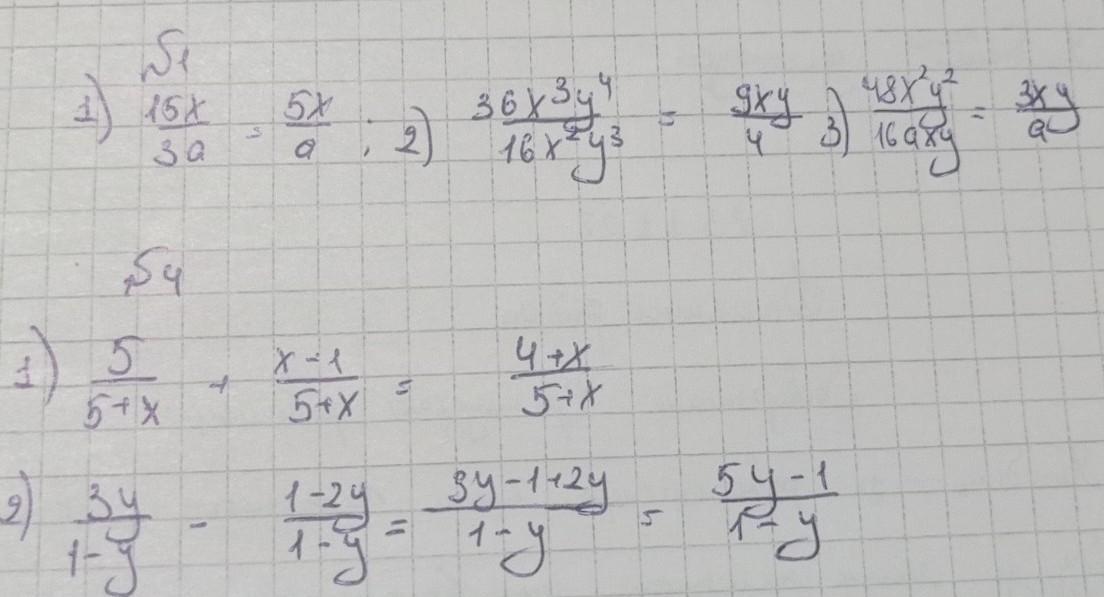 №1
1) 15x/3a = 5x/a ; 2) 36x³y⁴/16x²y³ = 9xy/4 3) 48x²y²/16axy = 3xy/a
№4
1) 5/5+x + x-1/5+x = 4+x/5+x
2) 3y/1-y - 1-2y/1-y = 3y-1+2y/1-y = 5y-1/1-y